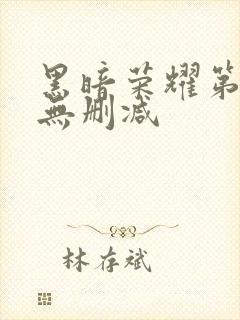 黑暗荣耀第
無删减
林存斌